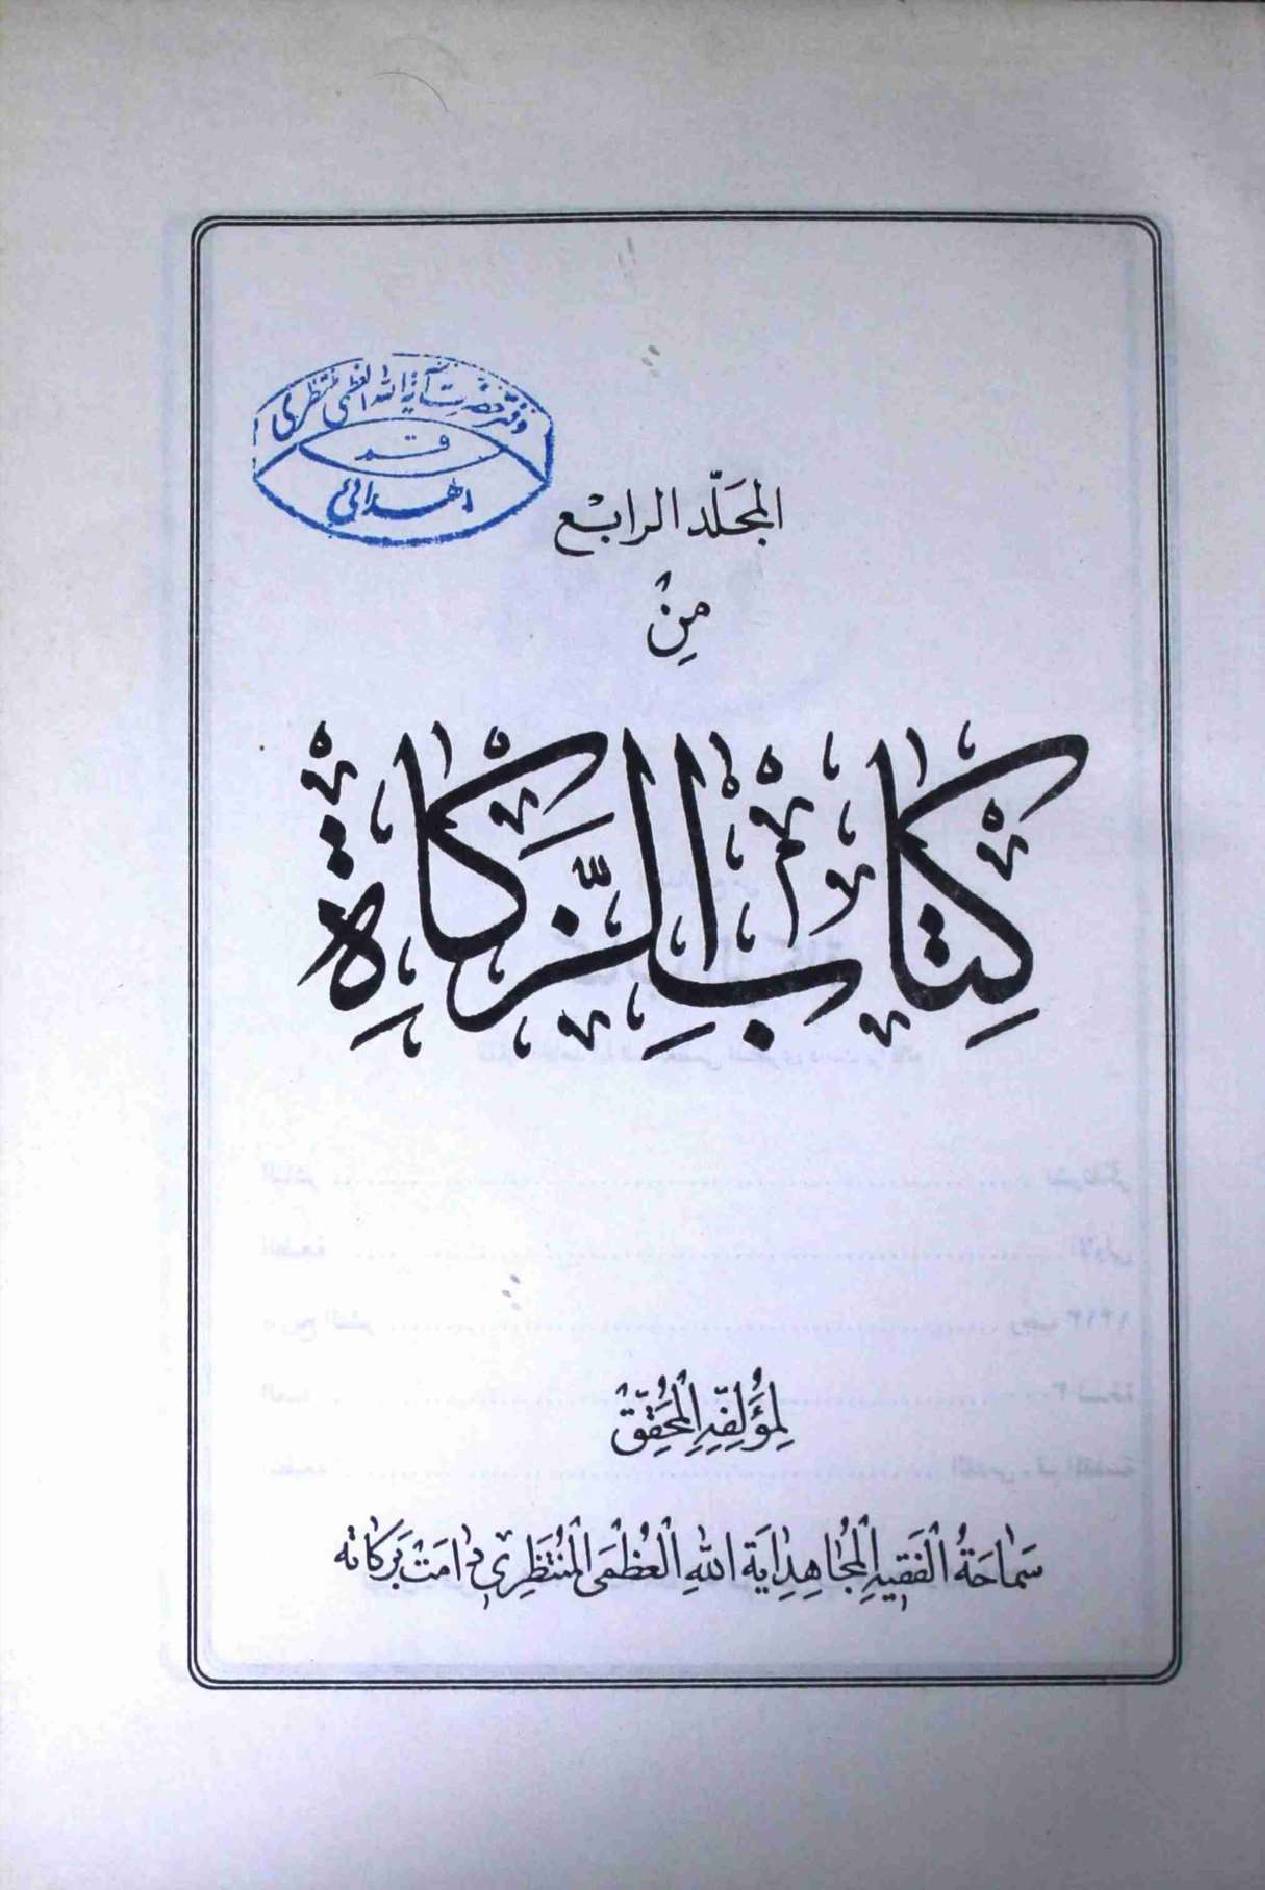 دفتر حضرت آیة الله العظمی منتظری
قم
اهدائی
المجَلّد الرابْع
مِنْ
كِتٰابُ الزَّكٰاةِ
لِمؤَلِّفِهِ الْمُحَقِّقْ
سَمٰاحَةُ الْفَقيهِ الْمُجٰاهِدِ ايَة اللهِ الْعُظْمَى الْمُنْتَظِرِي دٰامَتْ بَرَكٰاته